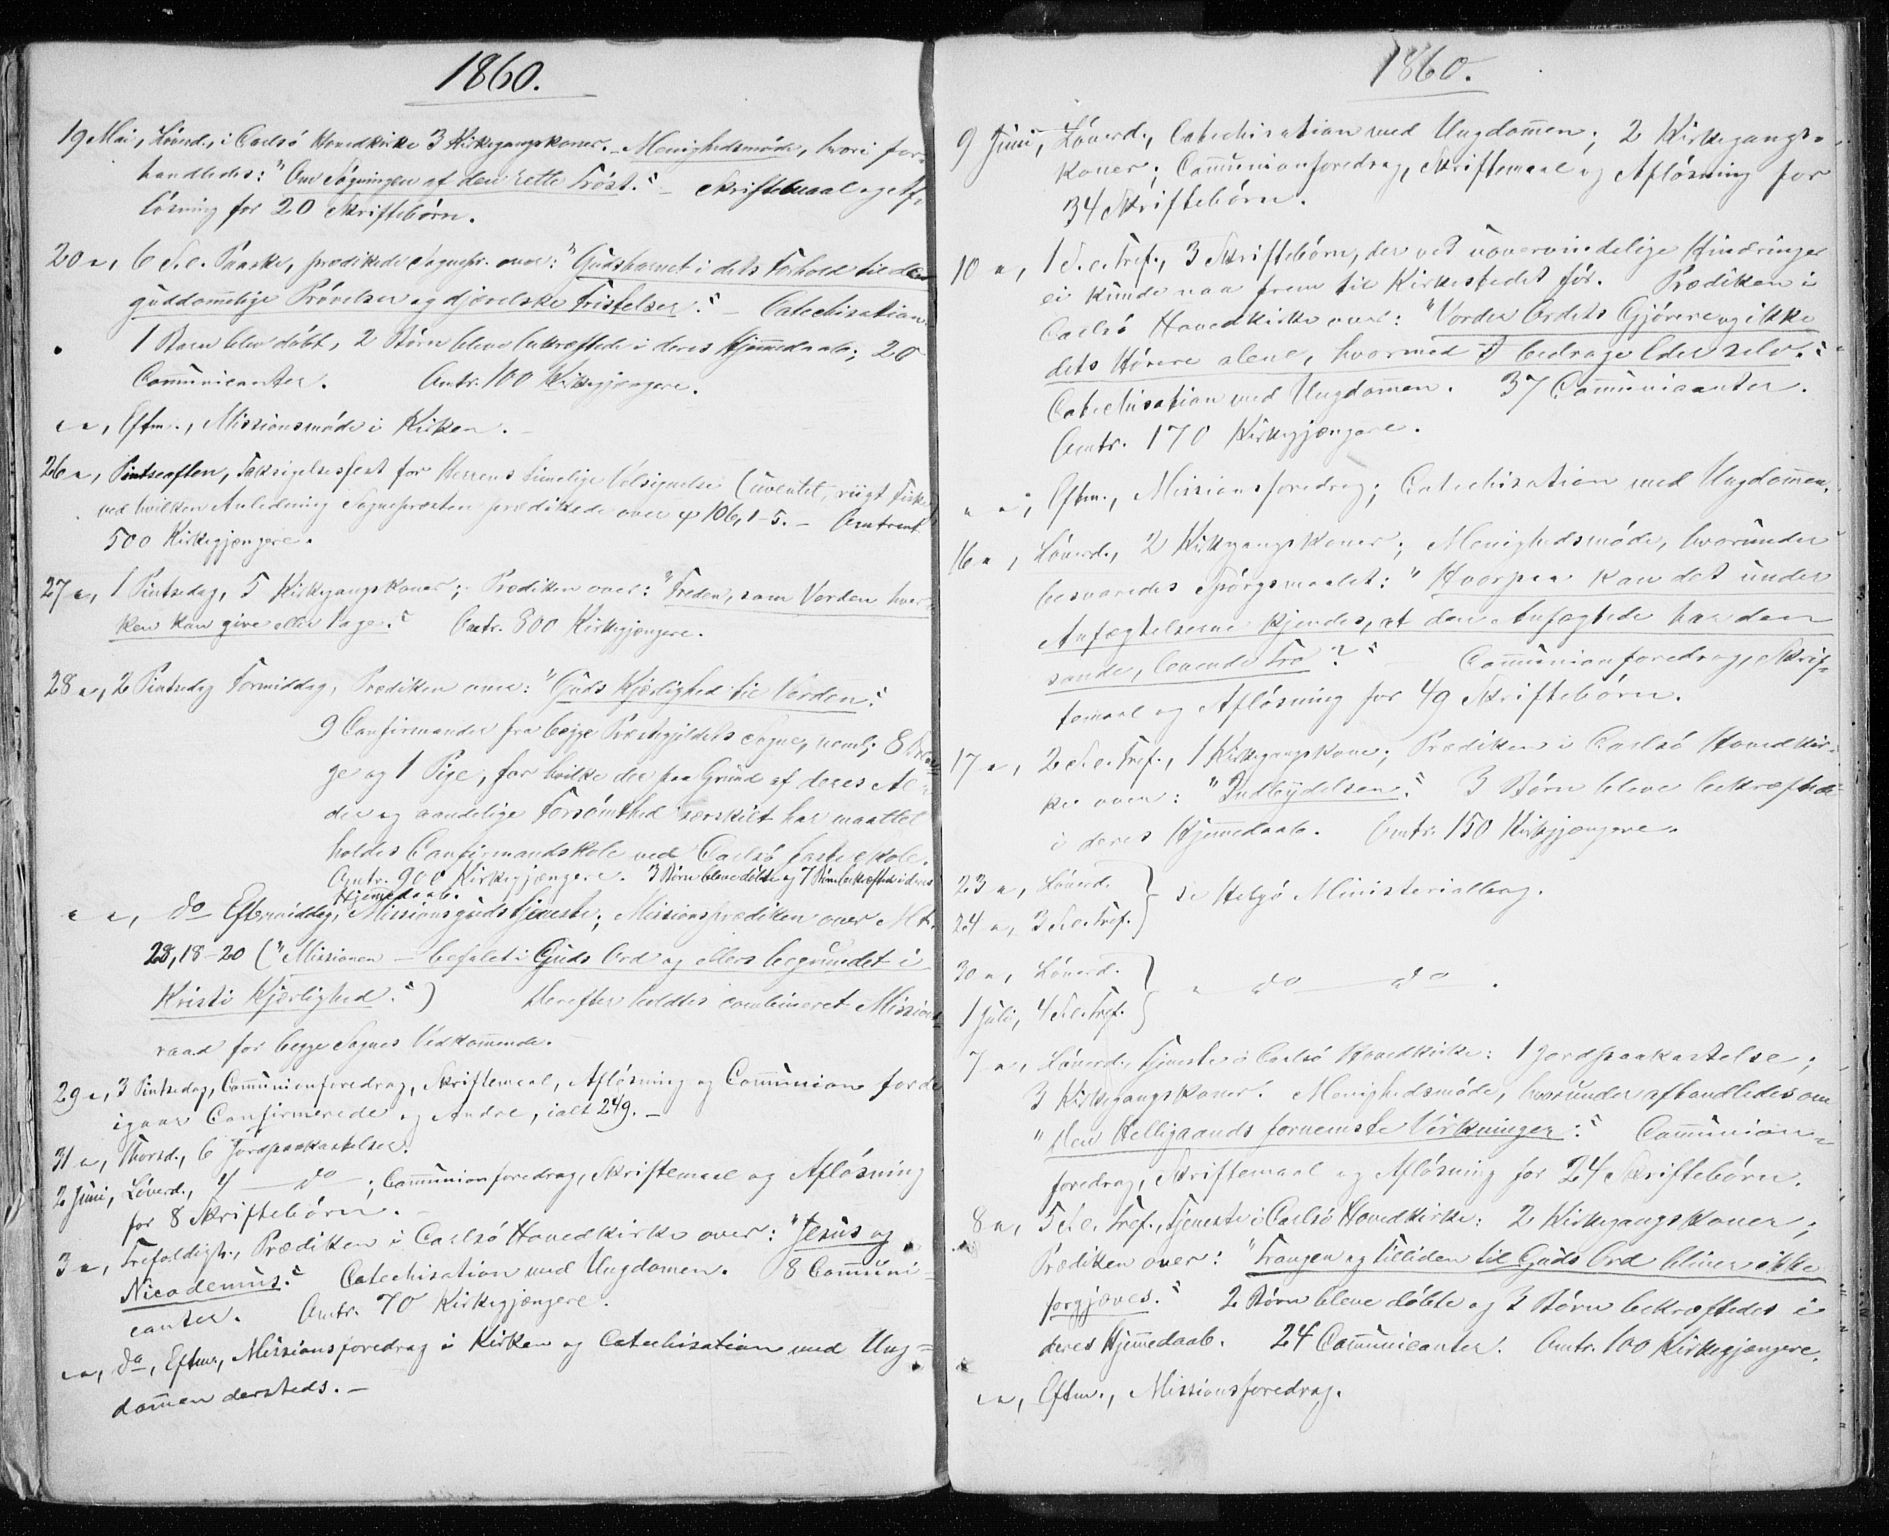 1860.
19 Mai, Löverd., i Carlsö Hovedkirke 3 Kirkegangskoner. – Menighedsmöde, hvori for-
handledes: "Om Sögningen af den rette Tröst." – Skriftemaal og Af-
lösning for 20 Skriftebörn.
20 ", 6 S. e. Paaske, prædikede Sognepr. over: "Gudsbarnet i dets Forhold til de
guddom̄elige Prövelser og djævelske Fristelser." – Catechisation.
1 Barn blev döbt, 2 Börn bleve bekræftede i deres Hjem̄edaab; 20
Com̄unicanter. Omtr. 100 Kirkegjængere.
" ", Eftm., Missionsmöde i Kirken. –
26 ", Pintseaften, Taksigelsesfest for Herrens timelige Velsignelse (uventet, riigt Fiske)
ved hvilken Anledning Sognepræsten prædikede over ψ 106, 1-5. – Omtrent
500 Kirkegjængere.
27 ", 1 Pintsedag, 5 Kirkegangskoner; Prædiken over: "Freden, som Verden hver-
ken kan give eller tage." Omtr. 800 Kirkegjængere.
28 ", 2 Pintsedag Formiddag, Prædiken over: "Guds Kjærlighed til Verden."
9 Confirmander fra begge Præstegjeldets Sogne, neml. 8 Dren-
ge og 1 Pige, for hvilke der paa Grund af deres Al-
der og aandelige Forsömthed særskilt har maattet
holdes Confirmandskole ved Carlsö faste Skole.
Omtr. 900 Kirkegjængere. 3 Börn bleve döbte og 7 Börn bekræftet i deres
Hjem̄edaab.
" ", do Eftermiddag, Missionsgudstjeneste; Missionsprædiken over Mt.
28, 18-20 ("Missionen – befalet i Guds Ord og ellers begrundet i
Kristi Kjærlighed.") Derefter holdtes combineret Missions-
raad for begge Sognes Vedkom̄ende. –
29 ", 3 Pintsedag, Com̄unionforedrag, Skriftemaal, Aflösning og Com̄union for de
igaar Confirmerede og Andre, ialt 249. –
31 ", Thorsd., 6 Jordpaakastelser.
2 Juni, Löverd., 4 — do — ; Com̄unionforedrag, Skriftemaal og Aflösning
for 8 Skriftebörn. –
3 ", Trefoldigh., Prædiken i Carlsö Hovedkirke over: "Jesus og
Nicodemus." Catechisation med Ungdomen. 8 Com̄uni-
canter. Omtr. 70 Kirkegjængere.
" ", do, Eftm., Missionsforedrag i Kirken og Catechisation med Ung-
dom̄en dersteds. –
1860.
9 Juni, Löverd., Catechisation med Ungdom̄en; 2 Kirkegangs-
koner; Com̄unionforedrag, Skriftemaal og Aflösning for
34 Skriftebörn.
10 ", 1 S. e. Tref., 3 Skriftebörn, der ved uovervindelige Hindringer
ei kunde naa frem til Kirkestedet för. Prædiken i
Carlsö Hovedkirke over: "Vorder Ordets Gjörere og ikke
dets Hörere alene, hvormed I bedrage Eder selv."
Catechisation med Ungdomen. 37 Com̄unicanter.
Omtr. 170 Kirkegjængere.
" ", Eftm., Missionsforedrag; Catechisation med Ungdom̄en.
16 ", Löverd., 2 Kirkegangskoner; Menighedsmöde, hvorunder
besvaredes Spörgsmaalet: "Hvorpaa kan det under
Anfægtelserne kjendes, at den Anfægtede har den
sande, levende Tro?" – Com̄unionforedrag, Skrif-
temaal og Aflösning for 49 Skriftebörn.
17 ", 2 S. e. Tref., 1 Kirkegangskone; Prædiken i Carlsö Hovedkir-
ke over: "Indbydelsen." 3 Börn bleve bekræftede
i deres Hjem̄edaab. Omtr. 150 Kirkegjængere.
23 ", Löverd.
24 ", 3 S. e. Tref. } se Helgö Ministerialbog.
30 ", Löverd.
1 Juli, 4 S. e. Tref. } " — do — do — .
7 ", Löverd., Tjeneste i Carlsö Hovedkirke: 1 Jordpaakastelse;
3 Kirkegangskoner. Menighedsmöde, hvorunder afhandledes om
"Den Helligaands fornemste Virkninger." Com̄union-
foredrag, Skriftemaal og Aflösning for 24 Skriftebörn.
8 ", 5 S. e. Tref., Tjeneste i Carlsö Hovedkirke: 2 Kirkegangskoner;
Prædiken over: "Trangen og Tilliden til Guds Ord bliver ikke
forgjæves." 2 Börn bleve döbte og 3 Börn bekræftedes i
deres Hjem̄edaab. 24 Com̄unicanter. Omtr. 100 Kirkegjængere.
" ", Eftm., Missionsforedrag.